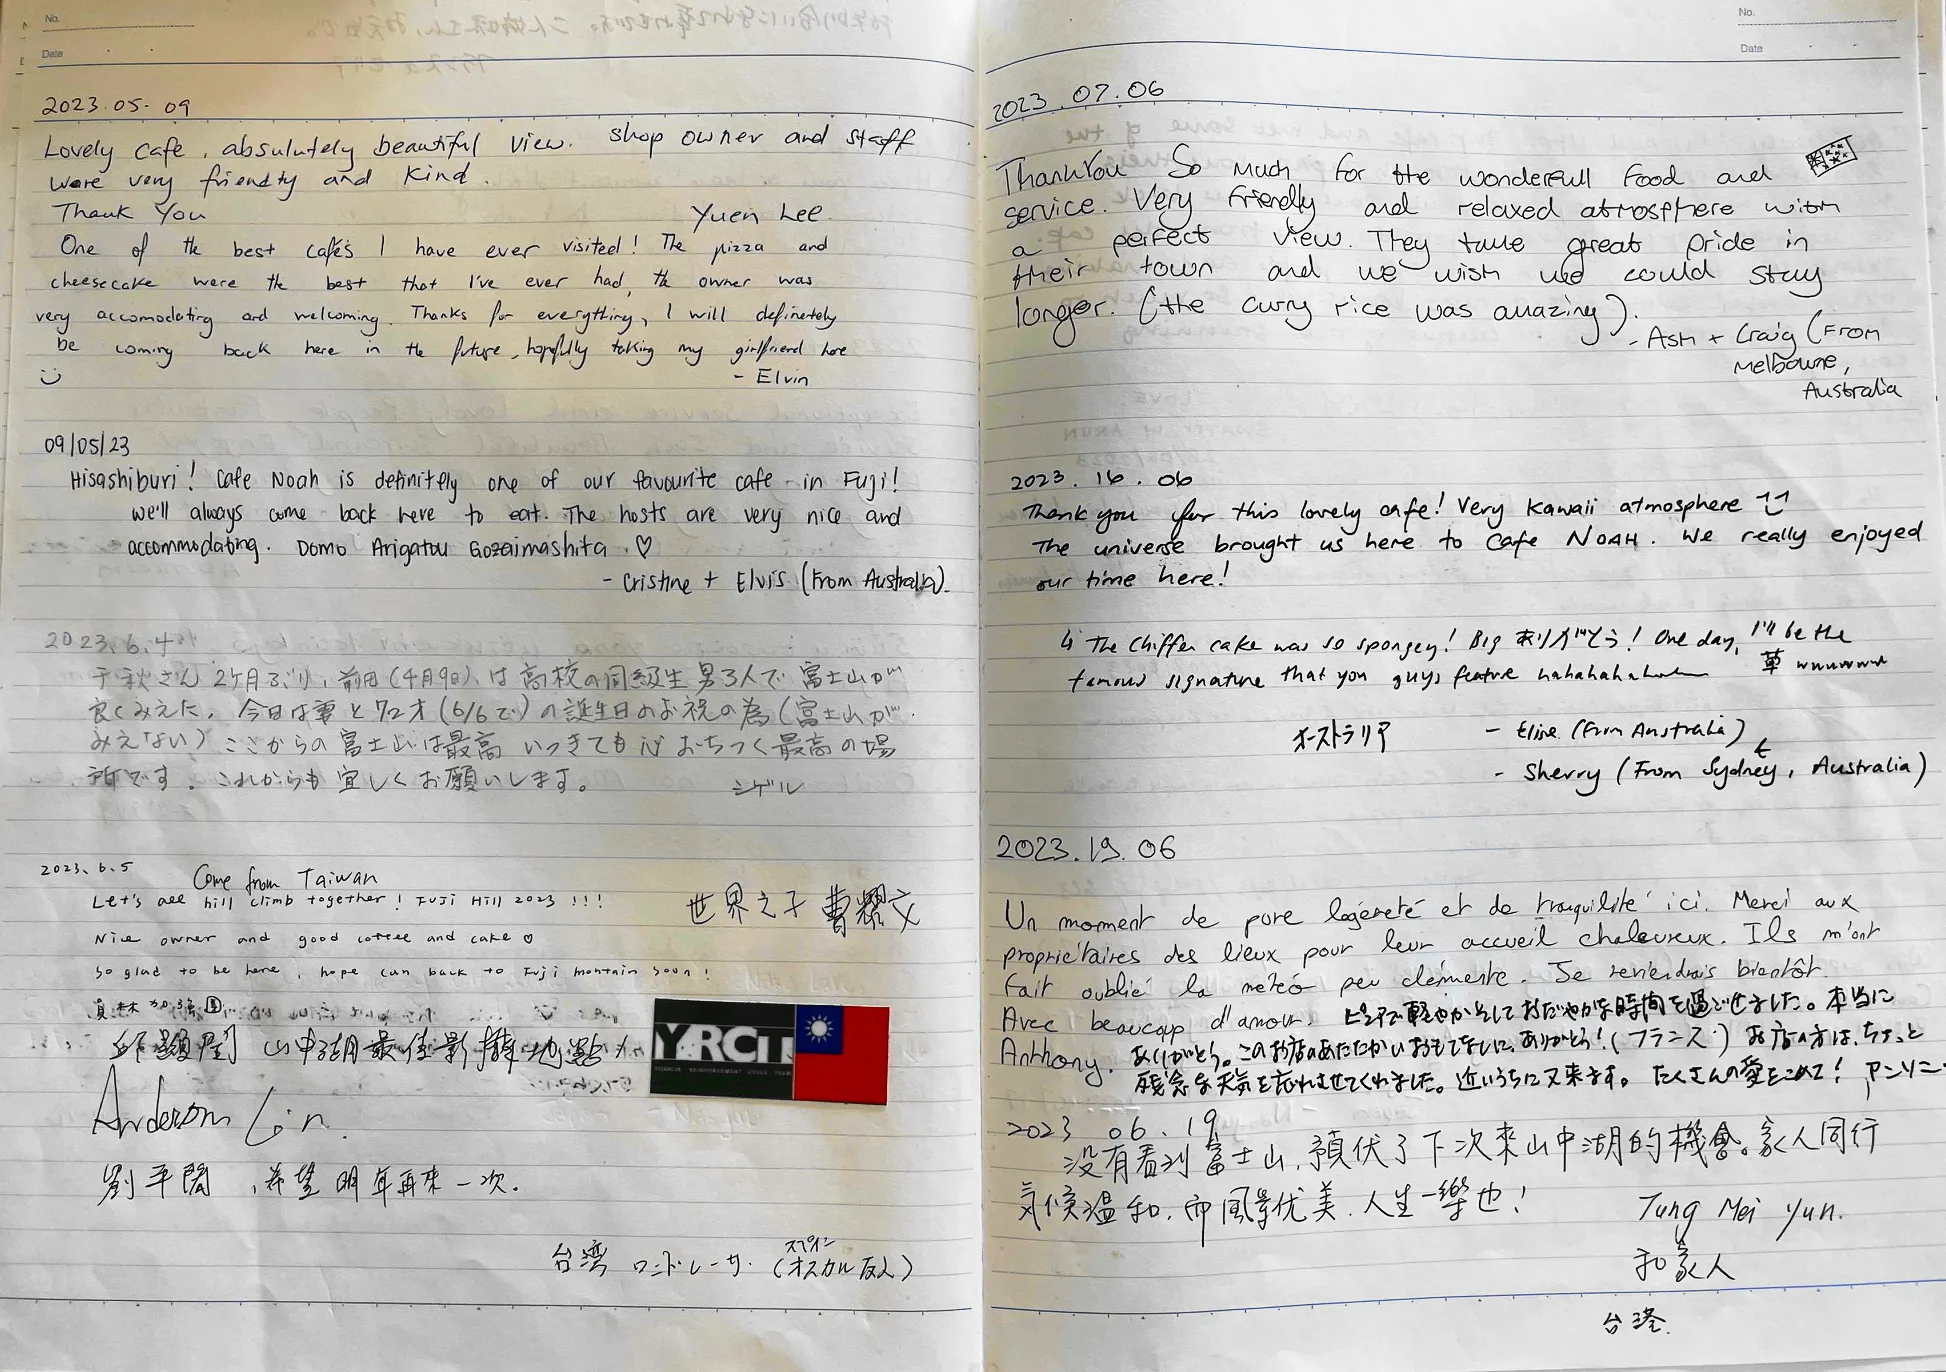 No.
Date
2023.05.09
Lovely cafe, absulutely beautiful view. shop owner and staff
were very friendty and kind.
Thank You Yuen Lee.
One of the best cafe's I have ever visited! The pizza and
cheesecake were the best that I've ever had, the owner was
very accomodating and welcoming. Thanks for everything, I will definetely
be coming back here in the future, hopfully taking my girlfriend here
- Elvin
09/05/23
Hisashiburi! Cafe Noah is definitely one of our favourite cafe in Fuji!
we'll always come back here to eat. The hosts are very nice and
accommodating. Domo Arigatou Gozaimashita ♡
- Cristine + Elvis (From Australia).
2023.6.4
千秋さん 2ケ月ぶり、前回(4月9日)は高校の同級生男3人で富士山が
良くみえた。今日は妻と72才(6/6で)の誕生日のお祝の為(富士山が
みえない)ここからの富士山は最高 いつきても心おちつく最高の場
所です。これからも宜しくお願いします。 シゲル
2023.6.5 Come from Taiwan
Let's all hill climb together! FUJI Hill 2023 !!!
世界之子 曹耀文
Nice owner and good coffee and cake ♡
So glad to be here, hope can back to Fuji montain soon!
山中湖最佳影攝地點
YRCT
Anderson Lin.
劉平開、希望明年再來一次.
台湾 ロードレーサー (オスカル友人)
スペイン
No.
Date
2023.07.06
ThankYou So much For the wonderfull food and
service. Very friendly and relaxed atmosphere with
a perfect view. They take great pride in
their town and we wish we could stay
longer. (the curry rice was amazing).
- Ash + Craig (From
Melbourne,
Australia
2023.16.06
Thank you for this lovely cafe! Very Kawaii atmosphere
The universe brought us here to Cafe NOAH. We really enjoyed
our time here!
↳ The Chiffen cake was so spongey! Big ありがとう! One day, I'll be the
famous signature that you guys feature hahahahaha 草 wwwwww
オーストラリア - Eline (From Australia)
- Sherry (From Sydney, Australia)
2023.19.06
Un moment de pure légèreté et de tranquilité ici. Merci aux
propriétaires des lieux pour leur accueil chaleureux. Ils m'ont
fait oublié la météo peu clémente. Je reviendrais bientôt.
Avec beaucoup d'amour. ピュアで軽やかそしておだやかな時間を過ごせました。本当に
Anthony. ありがとう。このお店のあたたかいおもてなしに、ありがとう!(フランス) お店の方は、ちょっと
残念な天気を忘れさせてくれました。近いうちに又来ます。たくさんの愛をこめて! アンソニー
2023 06.19
没有看到富士山,預伏了下次來山中湖的機會。家人同行
気候溫和,而風景优美.人生一樂也!
Tung Mei Yun.
和家人
台湾